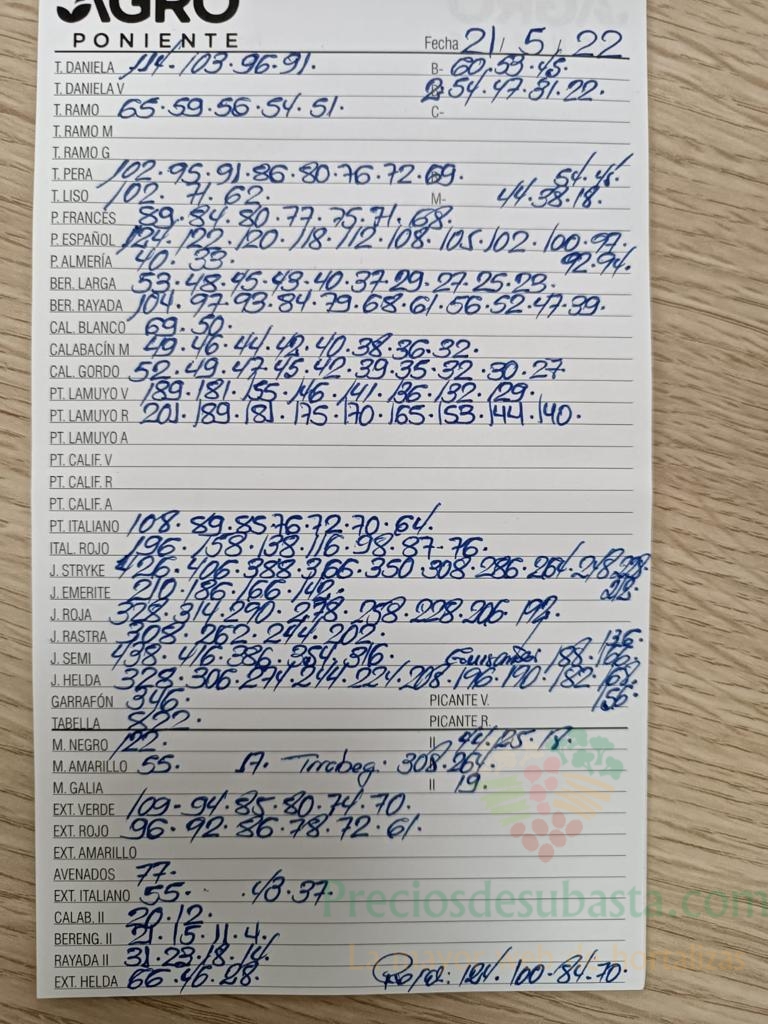 AGRO
PONIENTE
Fecha 21, 5, 22
T. DANIELA 114. 103. 96. 91. B- 60. 53. 45.
T. DANELA V 54. 47. 31. 22.
T. RAMO 65. 59. 56. 54. 51. C-
T. RAMO M
T. RAMO G
T. PERA 102. 95. 91. 86. 80. 76. 72. 69. 54. 48.
T. LISO 102. 71. 62. M- 44. 38. 18.
P. FRANCÉS 89. 84. 80. 77. 75. 71. 68.
P. ESPAÑOL 124. 122. 120. 118. 112. 108. 105. 102. 100. 97.
P. ALMERÍA 40. 33. 92. 94.
BER. LARGA 53. 48. 45. 43. 40. 37. 29. 27. 25. 23.
BER. RAYADA 104. 97. 93. 84. 79. 68. 61. 56. 52. 47. 39.
CAL. BLANCO 69. 50.
CALABACÍN M 49. 46. 44. 42. 40. 38. 36. 32.
CAL. GORDO 52. 49. 47. 45. 42. 39. 35. 32. 30. 27
PT. LAMUYO V 189. 181. 155. 146. 141. 136. 132. 129.
PT. LAMUYO R 201. 189. 181. 175. 170. 165. 153. 144. 140.
PT. LAMUYO A
PT. CALIF. V
PT. CALIF. R
PT. CALIF. A
PT. ITALIANO 108. 89. 85 76. 72. 70. 64.
ITAL. ROJO 196. 158. 138. 116. 98. 87. 76.
J. STRYKE 426. 406. 388. 366. 350 308. 286. 264. 248.
J. EMERITE 210. 186. 166. 142. 218.
J. ROJA 328. 314. 290. 278. 258. 228. 206. 192.
J. RASTRA 308. 262. 244. 202. 136.
J. SEMI 438. 416. 386. 354. 316. 188. 166.
J. HELDA 328. 306. 274. 244. 224. 208. 196. 190. 182. 168.
GARRAFÓN 346. PICANTE V. 156.
TABELLA 822. PICANTE R.
M. NEGRO 122. II 44. 25. 18.
M. AMARILLO 55. 17. 308. 264.
M. GALIA II 19.
EXT. VERDE 109- 94. 85. 80. 74. 70.
EXT. ROJO 96. 92. 86. 78. 72. 61.
EXT. AMARILLO
AVENADOS 77.
EXT. ITALIANO 55. 43. 37.
Preciosdesubasta.com
CALAB. II 20. 12.
BERENG. II 21. 15. 11. 4.
RAYADA II 31. 23. 18. 14.
EXT. HELDA 66. 46. 28. 124. 100. 84. 70.